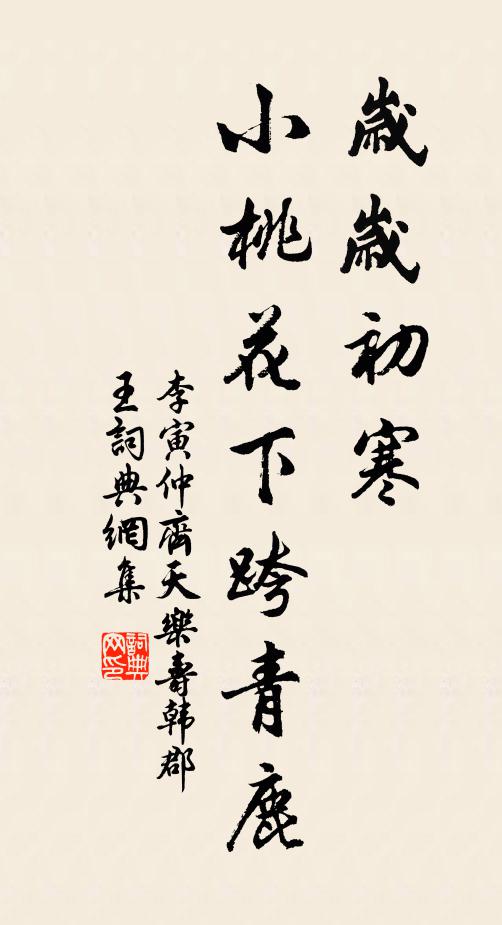 歲歲初寒
小桃花下跨青鹿
李寅仲齊天樂壽韩郡
王詞典網集
詞典
网印